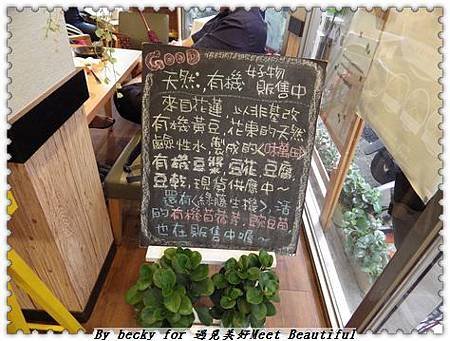 GOOD
天然,有機好物
販售中
來自花蓮 以非基改
有機黃豆,花東的天然
鹼性水,製成的<味萬田>
有機豆漿、豆花、豆腐
豆乾,現貨供應中~
還有<綠藤生機>,活
的有機苜蓿芽、豌豆苗
也在販售中喔~
By becky for 遇見美好Meet Beautiful